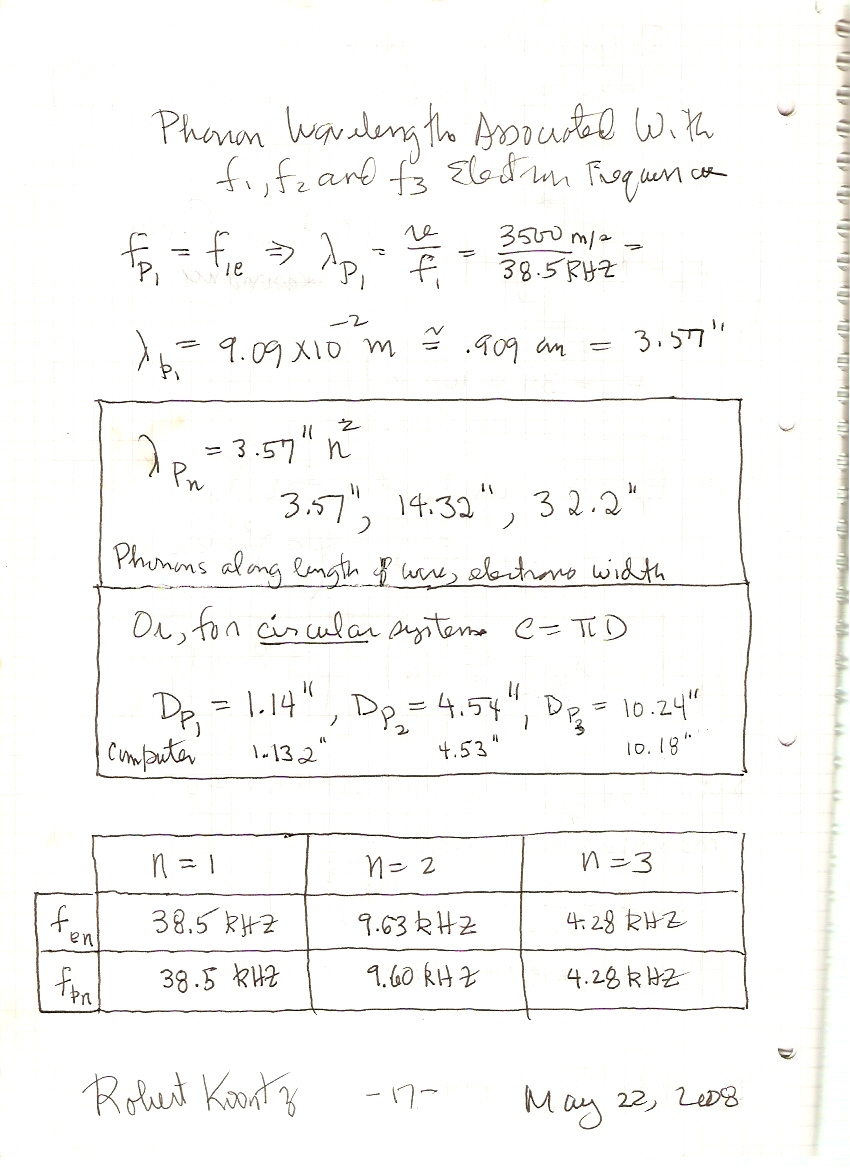 Phonon Wavelengths Associated With
f₁, f₂ and f₃ Electron Frequencies
f_P₁ = f₁e ⇒ λ_P₁ = v/f₁ = 3500 m/s / 38.5 KHZ =
λ_P₁ = 9.09 X10⁻² m ≅ .909 cm = 3.57"
λ_Pn = 3.57" n²
3.57", 14.32", 32.2"
Phonons along length of wire, electrons width
Or, for circular systems C = πD
D_P₁ = 1.14", D_P₂ = 4.54", D_P₃ = 10.24"
Computer 1.132" 4.53" 10.18"
n = 1 n = 2 n = 3
f_en 38.5 KHZ 9.63 KHZ 4.28 KHZ
f_pn 38.5 KHZ 9.60 KHZ 4.28 KHZ
Robert Koontz -17- May 22, 2008